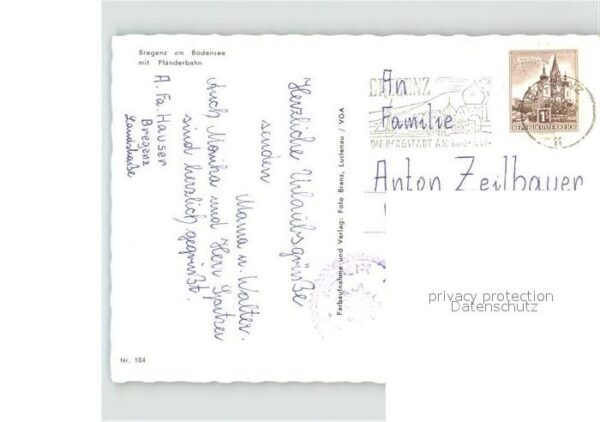 Bregenz am Bodensee
mit Pfänderbahn
A. Fa. Hauser
Bregenz
Landstraße
Herzliche Urlaubsgrüße
senden
Mama u. Walter.
Auch Monika und Herr Spitzer
sind herzlich gegrüßt.
Farbaufnahme und Verlag: Foto Branz, Lustenau / VGA
BREGENZ
DIE BERGSTADT AM BODENSEE
REPUBLIK ÖSTERREICH
An
Familie
Anton Zeilbauer
privacy protection
Datenschutz
Nr. 104